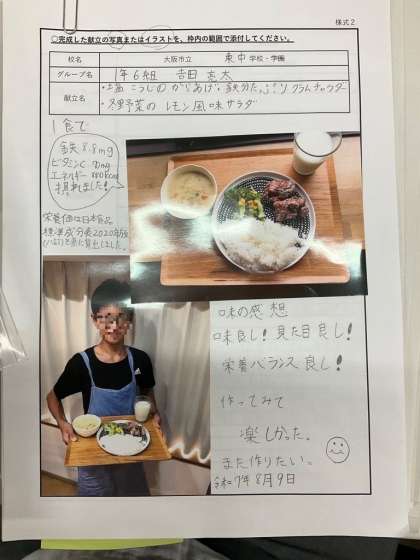 様式2
○完成した献立の写真またはイラストを、枠内の範囲で添付してください。
校名 大阪市立 東中 学校・学園
グループ名 1年6組 吉田 亮太
献立名 ・塩こうじのからあげ・鉄分たっぷりクラムチャウダー
・冬野菜のレモン風味サラダ
1食で
鉄 8.8mg
ビタミンC 70mg
エネルギー
摂れました!
栄養価は日本食品
標準成分表2020年版
を基に算出しました。
味の感想
味良し!見た目良し!
栄養バランス良し!
作ってみて
楽しかった。
また作りたい。
令和7年8月9日